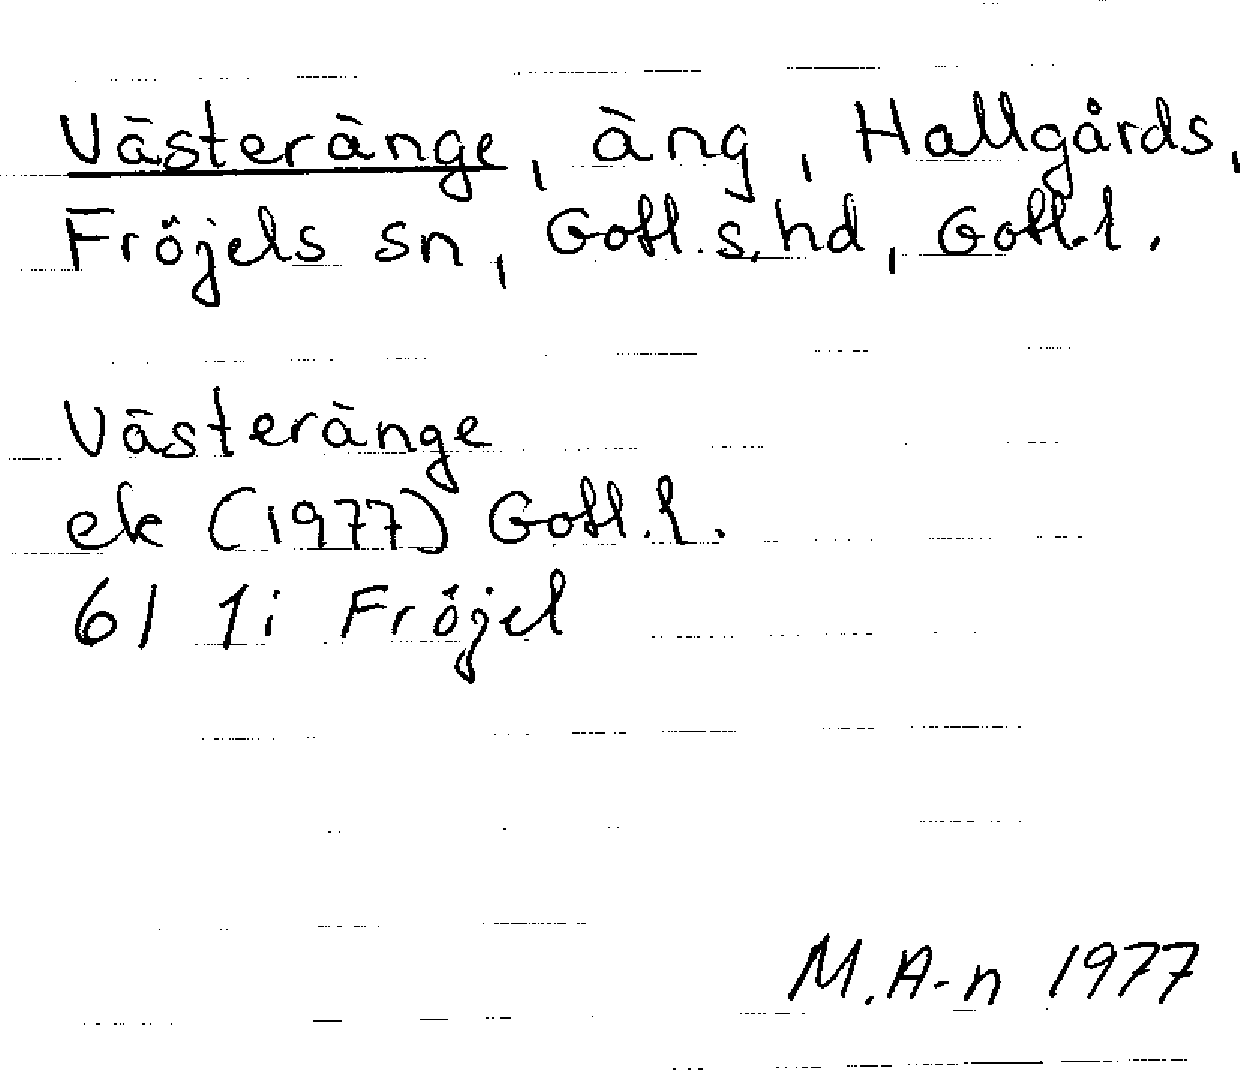 Västeränge, äng, Hallgårds,
Fröjels sn, Gotl.s.hd, Gotl.l.
Västeränge
ek (1977) Gotl.l.
6I 1i Fröjel
M.A-n 1977